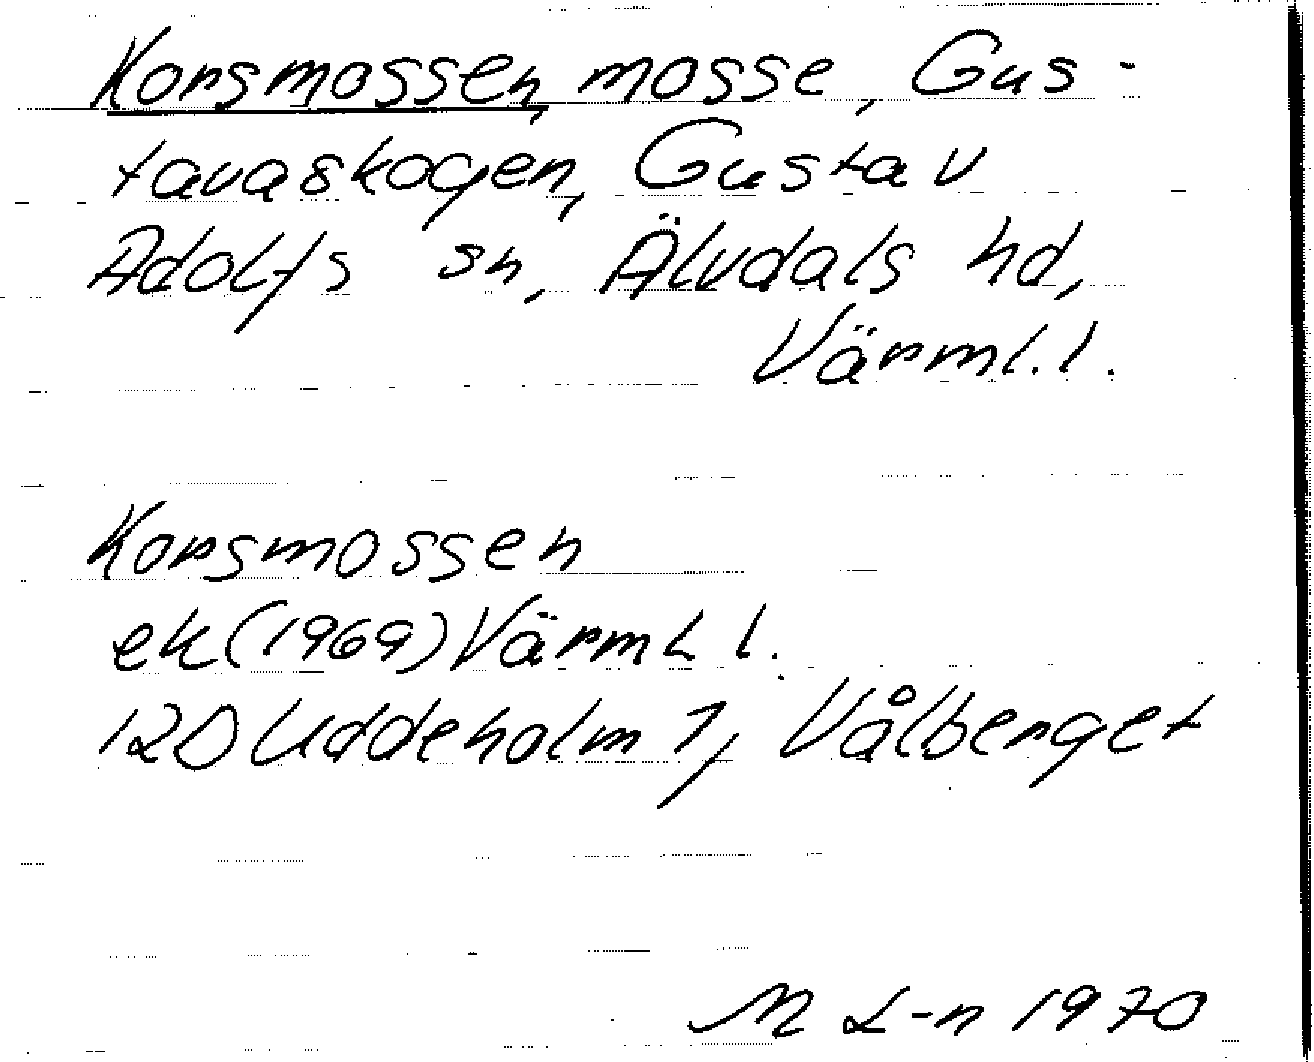 Korsmossen, mosse, Gus-
tavaskogen, Gustav
Adolfs sn, Älvdals hd,
Värml. l.
Korsmossen
ek (1969) Värml l.
12D Uddeholm 7j Vålberget
M L-n 1970